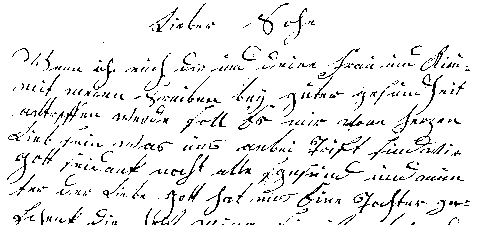 Lieber Sohn
Wenn ich euch dir und deine Frau und Kin-
mit meinen Schreiben bey guter gesundheit
antreffen werde soll Es mir von herzen
Lieb sein was uns anbei Trift sind wir
gott seidank noch alle gesund und
ter der Liebe gott hat uns Eine Tochter ge-
schenk die